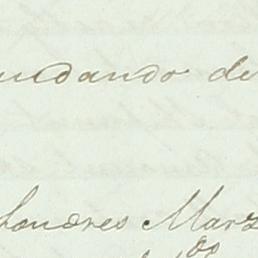 undando de
Londres Marz